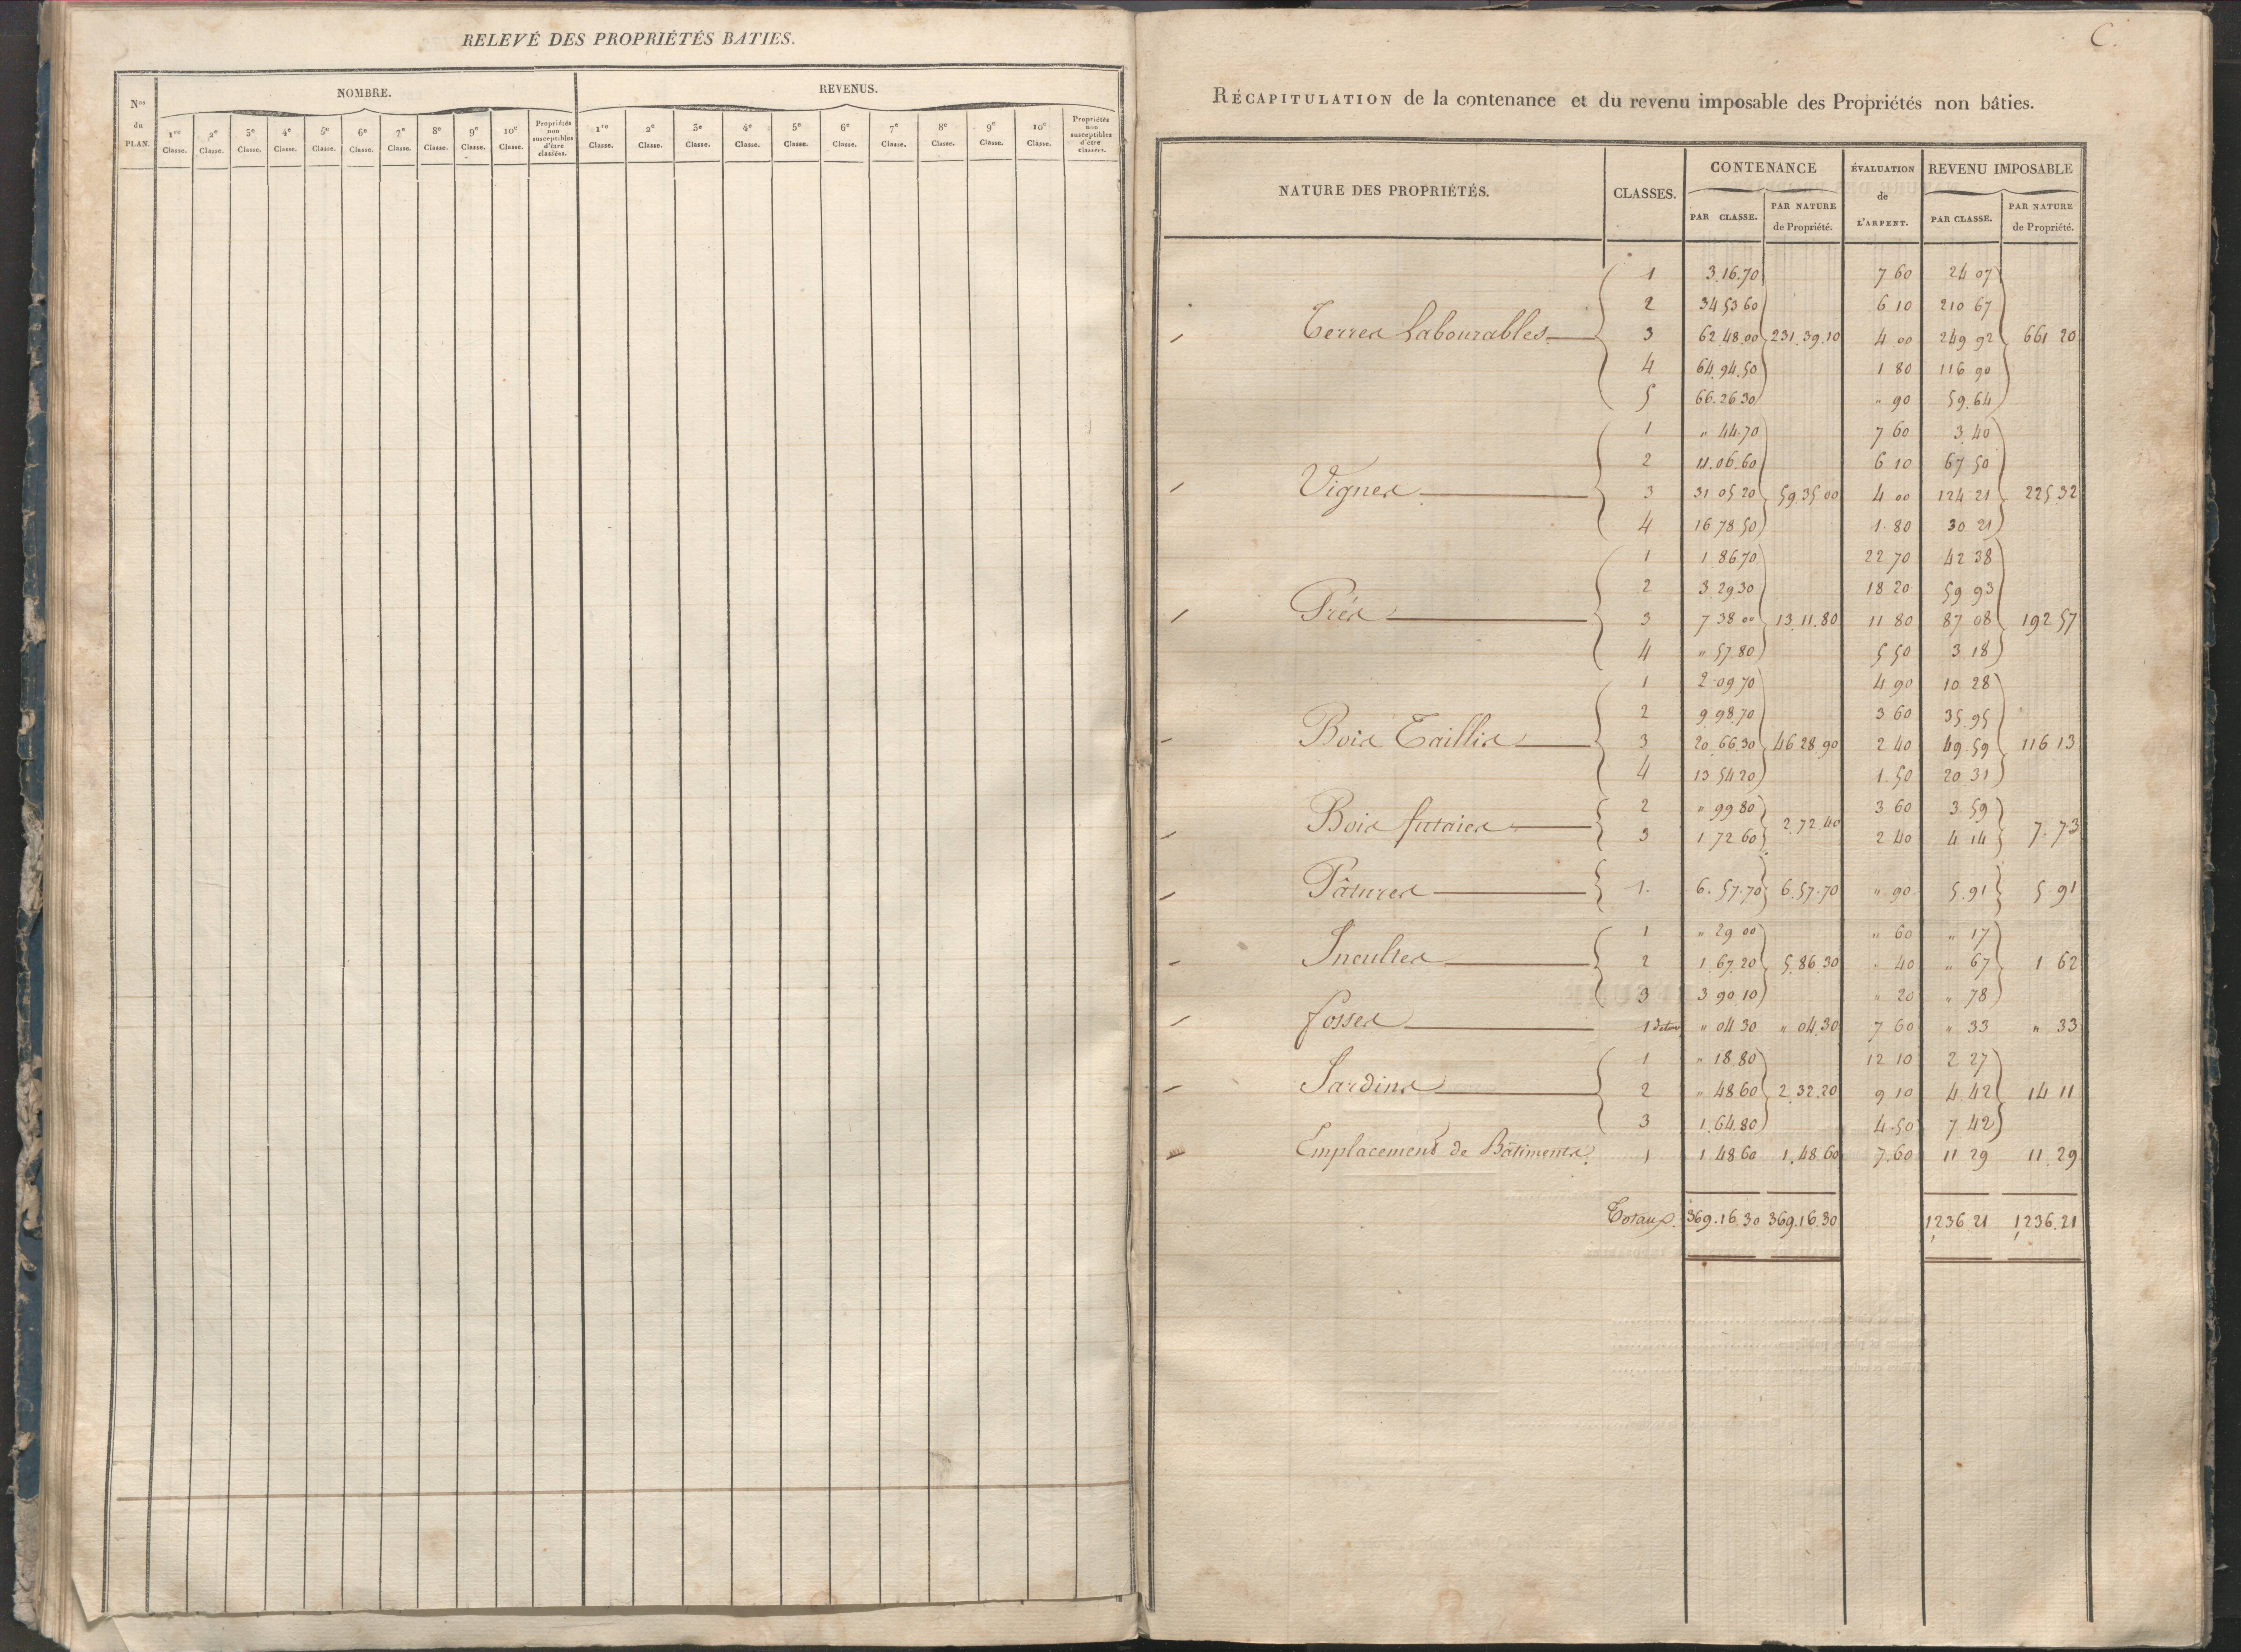 RELEVÉ DES PROPRIÉTÉS BATIES.
Nos du PLAN.
NOMBRE.
REVENUS.
1re Classe. 2e Classe. 3e Classe. 4e Classe. 5e Classe. 6e Classe. 7e Classe. 8e Classe. 9e Classe. 10e Classe. Propriétés non susceptibles d'être classées.
1re Classe. 2e Classe. 3e Classe. 4e Classe. 5e Classe. 6e Classe. 7e Classe. 8e Classe. 9e Classe. 10e Classe. Propriétés non susceptibles d'être classées.
C.
RÉCAPITULATION de la contenance et du revenu imposable des Propriétés non bâties.
NATURE DES PROPRIÉTÉS. CLASSES. CONTENANCE ÉVALUATION de L'ARPENT. REVENU IMPOSABLE
PAR CLASSE. PAR NATURE de Propriété. PAR CLASSE. PAR NATURE de Propriété.
1 3.16.70 7 60 24 07
2 34 53 60 6 10 210 67
Terres Labourables 3 62 48.00 231.39.10 4 00 249 92 661 20
4 64.94.50 1 80 116 90
5 66.26 30 " 90 59.64
1 " 44.70 7 60 3.40
2 11.06.60 6 10 67 50
Vignes 3 31 05 20 59.35 00 4 00 124 21 225 32
4 16 78 50 1.80 30 21
1 1 86.70 22 70 42 38
2 3 29 30 18 20 59 93
Prés 3 7 38 00 13.11.80 11 80 87 08 192 57
4 " 57.80 5 50 3 18
1 2.09 70 4 90 10 28
2 9 98.70 3 60 35.95
Bois Taillis 3 20 66.30 46 28.90 2 40 49.59 116 13
4 13 54 20 1.50 20 31
Bois futaies 2 " 99 80 2.72.40 3 60 3.59 7.73
3 1.72 60 2 40 4 14
Pâtures 1. 6.57.70 6.57.70 " 90 5.91 5.91
1 " 29 00 " 60 " 17
Incultes 2 1.67.20 5.86.30 " 40 " 67 1 62
3 3 90 10 " 20 " 78
fosses 1 " 04 30 " 04.30 7 60 " 33 " 33
1 " 18.80 12 10 2 27
Jardins 2 " 48 60 2.32.20 9 10 4.42 14 11
3 1.64.80 4.50 7.42
Emplacement de Bâtiments. 1 1 48 60 1.48.60 7.60 11 29 11.29
Totaux. 369.16.30 369.16.30 1236 21 1236.21